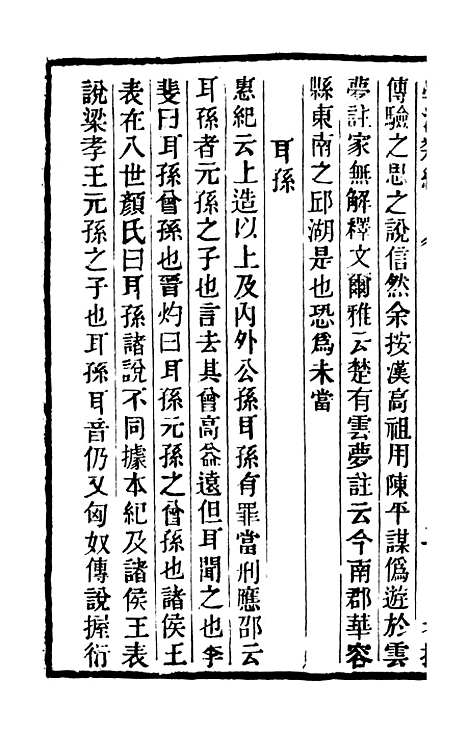 傳驗之思之說信然余按漢高祖用陳平謀偽遊於雲
夢註家無解釋文爾雅云楚有雲夢註云今南郡華容
縣東南之邱湖是也恐為未當
耳孫
惠紀云上造以上及內外公孫耳孫有罪當刑應邵云
耳孫者元孫之子也言去其曾高益遠但耳聞之也李
斐曰耳孫曾孫也晉灼曰耳孫元孫之曾孫也諸侯王
表在八世顏氏曰耳孫諸說不同據本紀及諸侯王表
說梁孝王元孫之子也耳孫耳音仍又匈奴傳說握衍